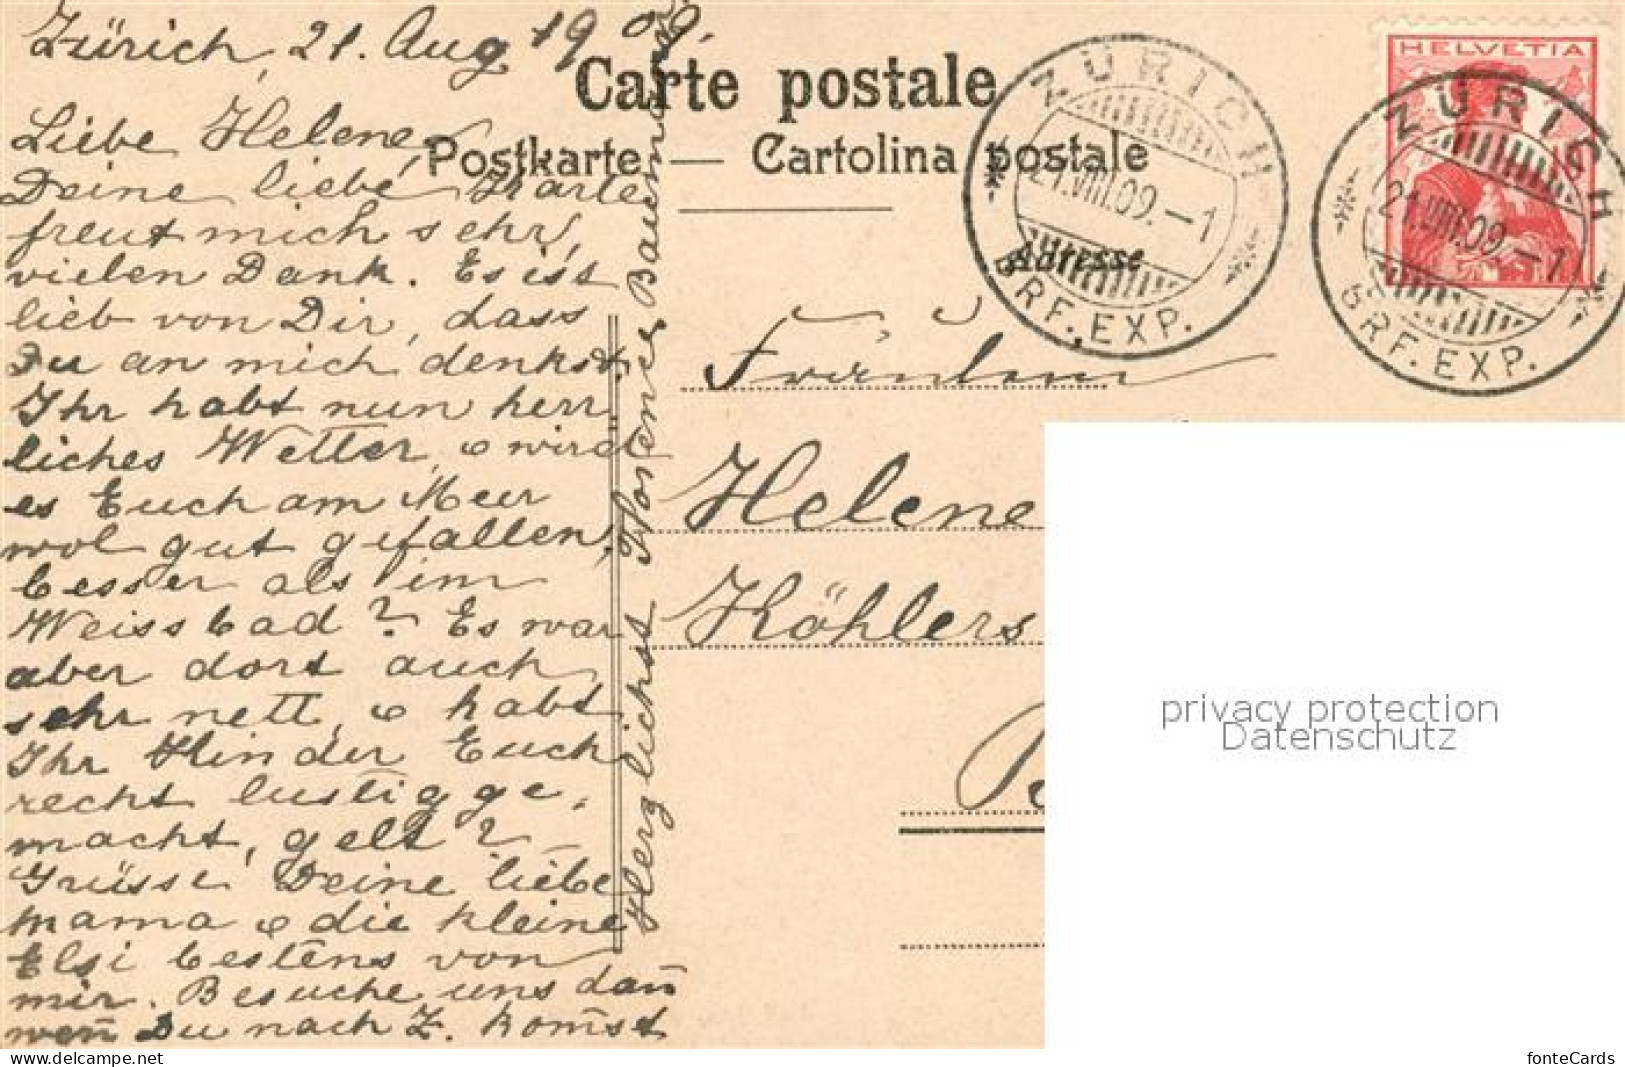 Zürich, 21. Aug 1909.
Liebe Helene,
Deine liebe Karte
freut mich sehr,
vielen Dank. Es ist
lieb von Dir, dass
Du an mich denkst.
Ihr habt nun herr-
liches Wetter, & wird
es Euch am Meer
wol gut gefallen,
besser als im
Weissbad? Es war
aber dort auch
sehr nett, & habt
Ihr Kinder Euch
recht lustig ge-
macht, gelt?
Grüsse Deine liebe
Mama & die kleine
Elsi bestens von
mir. Besuche uns dan̄
wen̄ Du nach Z. kom̄st
Herzlichst
Carte postale
Postkarte — Cartolina postale
Adresse
Fräulein
Helene
Köhlers
ZÜRICH
21.VIII.09.-1
BRF. EXP.
HELVETIA
ZÜRICH
21.VIII.09.-11
BRF. EXP.
privacy protection
Datenschutz
www.ansichtskartenversand.com
fonteCards